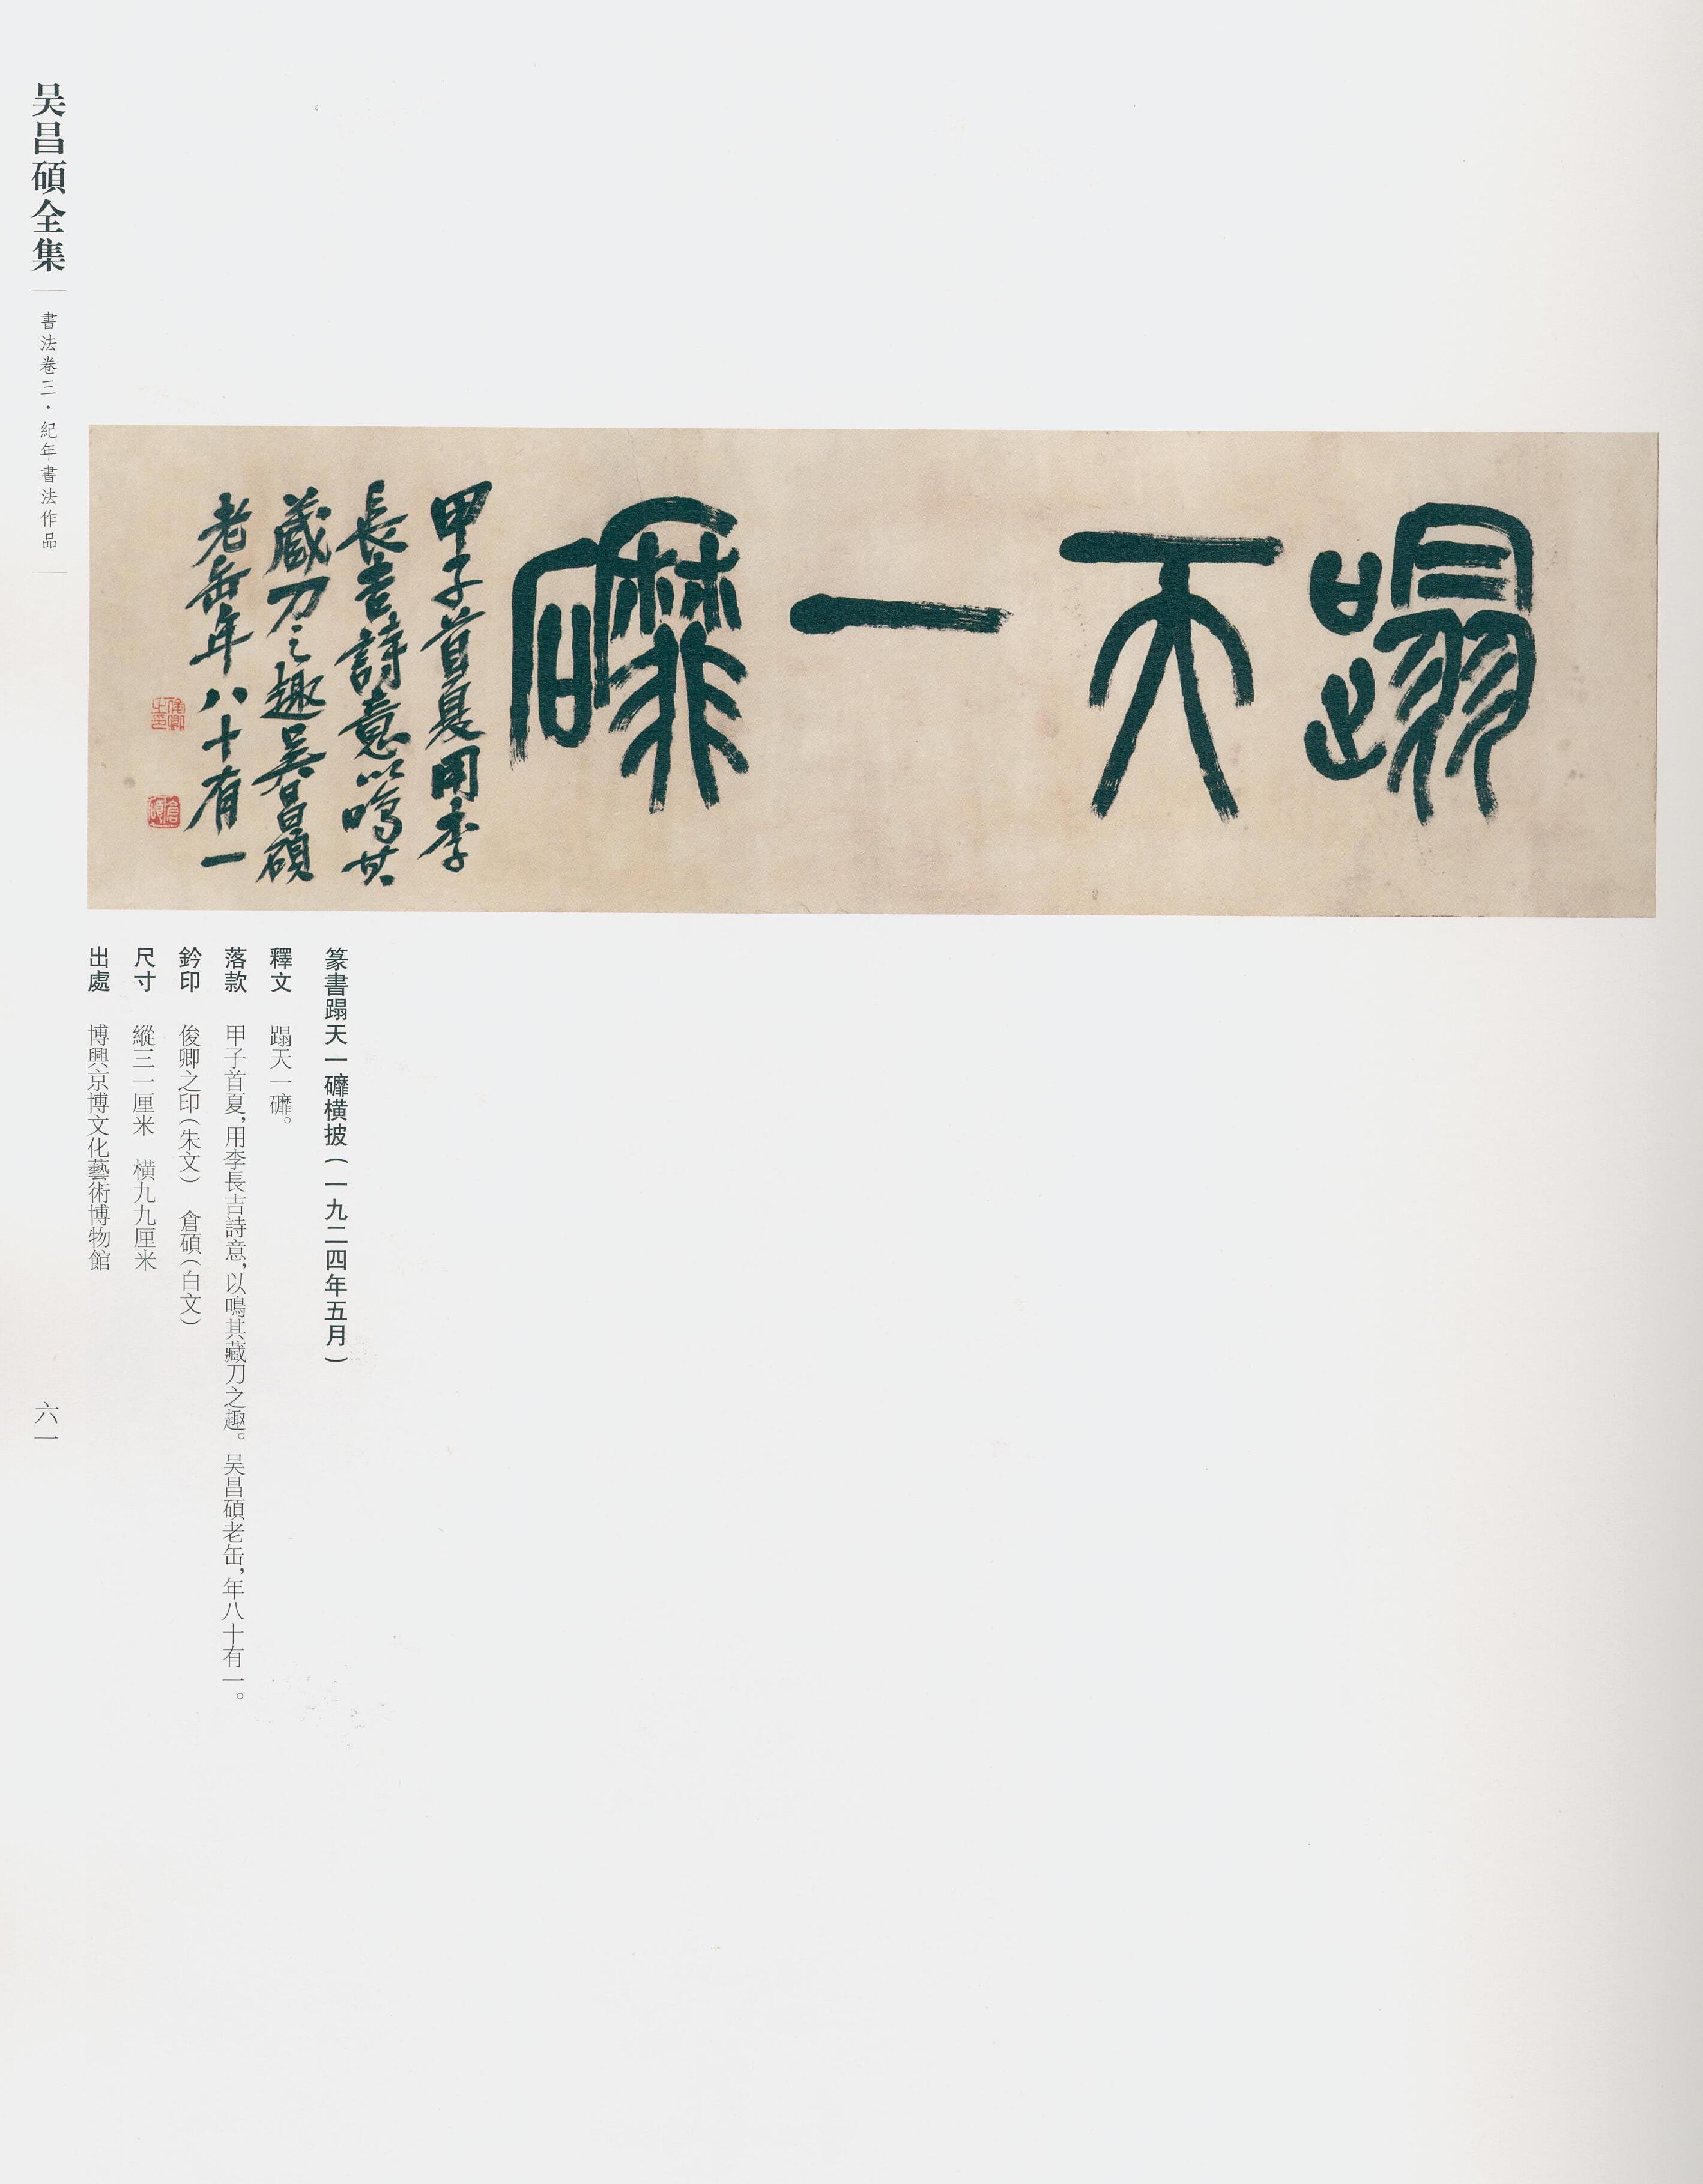 蹋天一礳
甲子首夏用李
長吉詩意以鳴其
藏刀之趣吴昌碩
老缶年八十有一
俊卿之印
倉碩
篆書蹋天一礳橫披（一九二四年五月）
釋文　蹋天一礳。
落款　甲子首夏，用李長吉詩意，以鳴其藏刀之趣。吴昌碩老缶，年八十有一。
鈐印　俊卿之印（朱文）　倉碩（白文）
尺寸　縱三一厘米　橫九九厘米
出處　博興京博文化藝術博物館
吴昌碩全集
書法卷三・紀年書法作品
六一